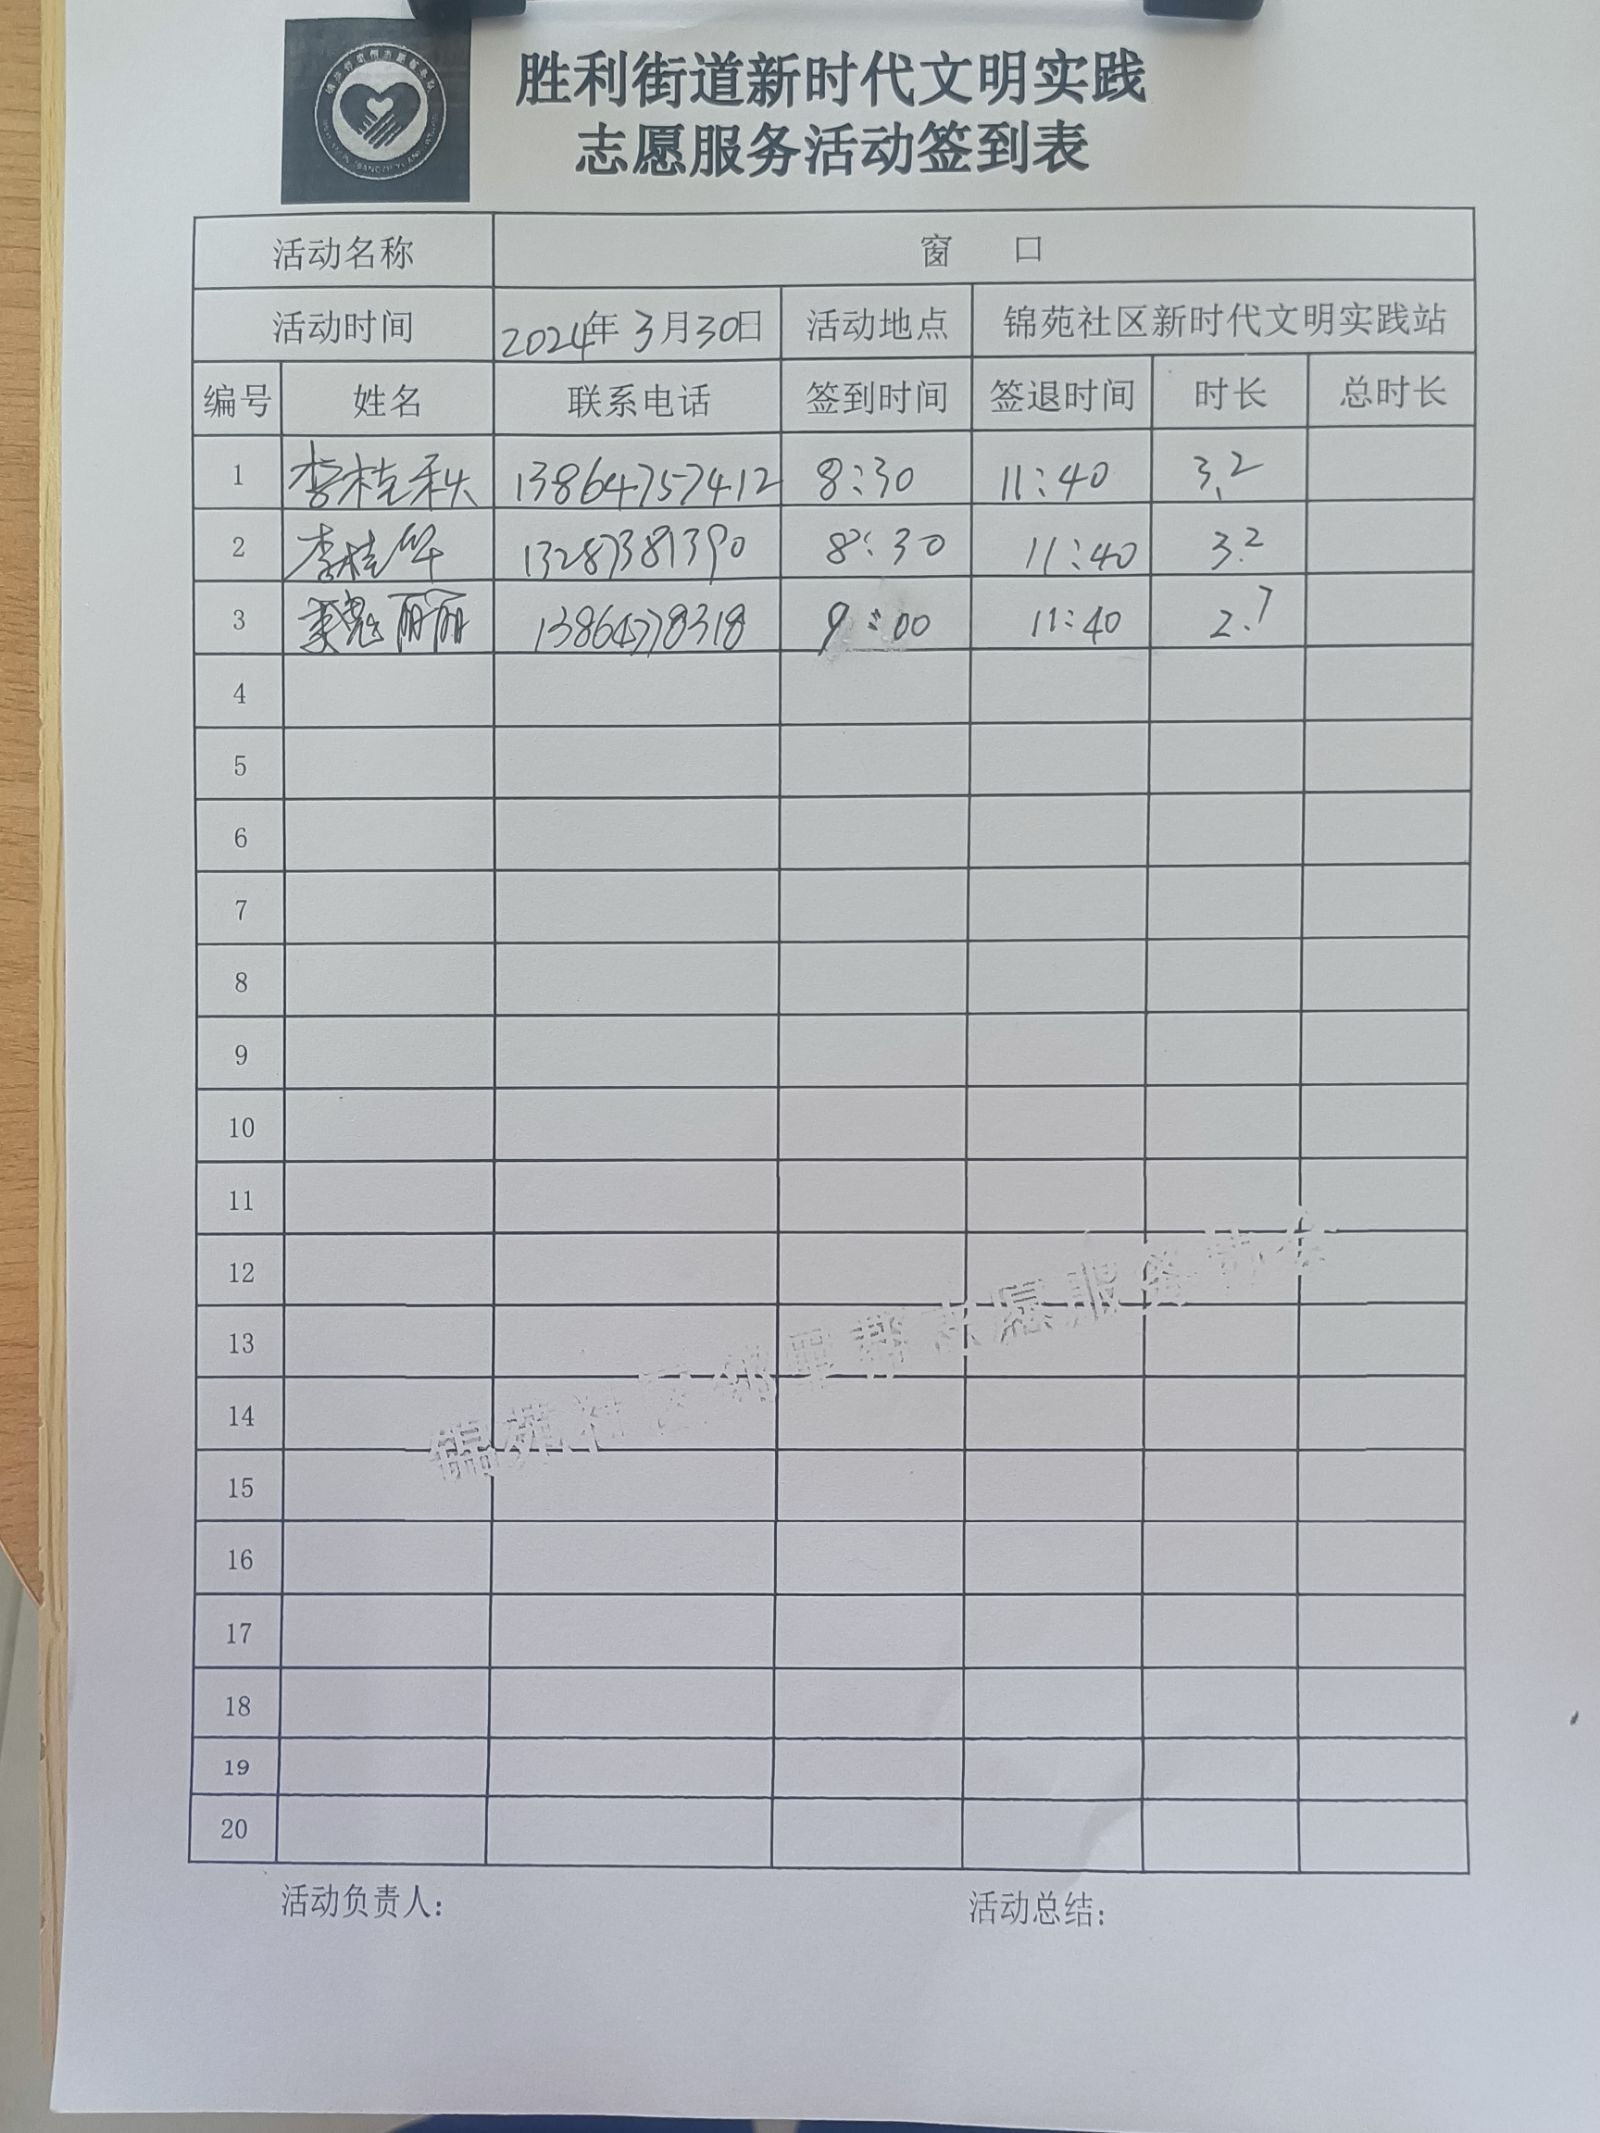 胜利街道新时代文明实践
志愿服务活动签到表
活动名称 窗 口
活动时间 2024年3月30日 活动地点 锦苑社区新时代文明实践站
编号 姓名 联系电话 签到时间 签退时间 时长 总时长
1 李桂秋 13864757412 8:30 11:40 3.2
2 李桂华 13287381390 8:30 11:40 3.2
3 丽丽 13864778318 9:00 11:40 2.7
4
5
6
7
8
9
10
11
12
13
14
15
16
17
18
19
20
锦苑社区邻里帮志愿服务
活动负责人: 活动总结: